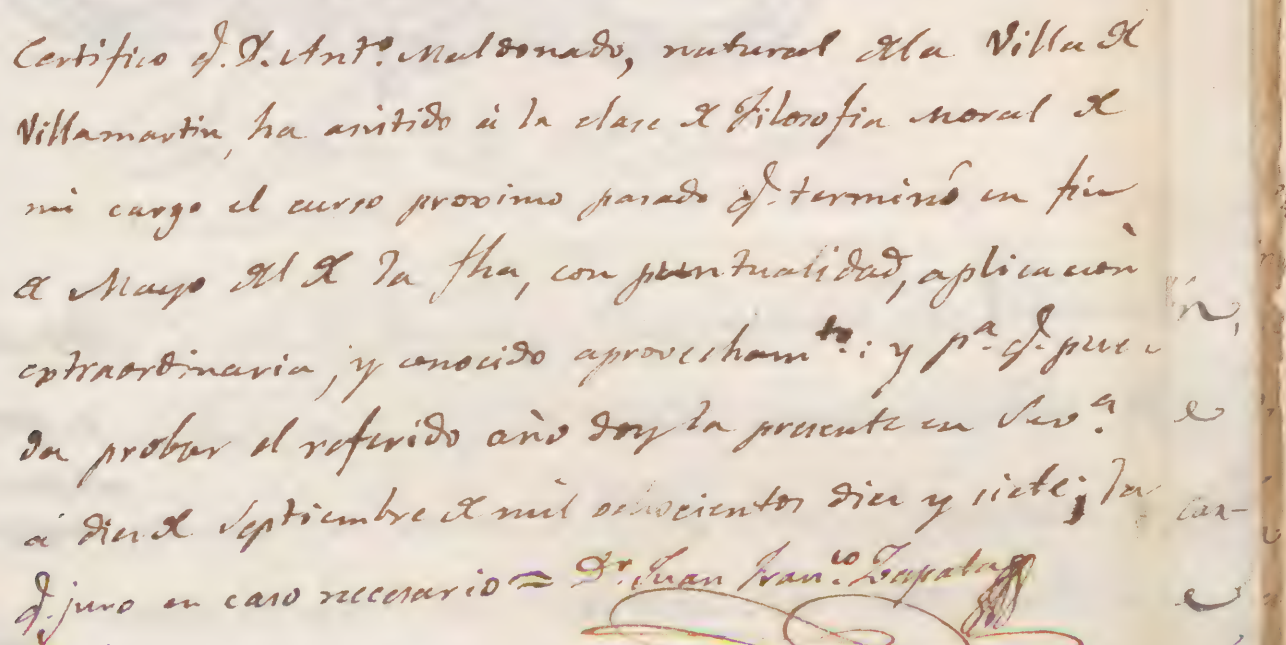 Certifico q.e D. Ant.o Maldonado, natural de la Villa de
Villamartin, ha asistido à la clase de Filosofia moral de
mi cargo el curso proximo pasado q.e terminó en fin
de Mayo del de la fha, con puntualidad, aplicacion
extraordinaria, y conocido aprovecham.to: y p.a q.e pue
da probar el referido año doy la presente en Sev.a
à diez de Septiembre de mil ochocientos diez y siete; la
q.e juro en caso necesario = D.r Juan Fran.co Zapata